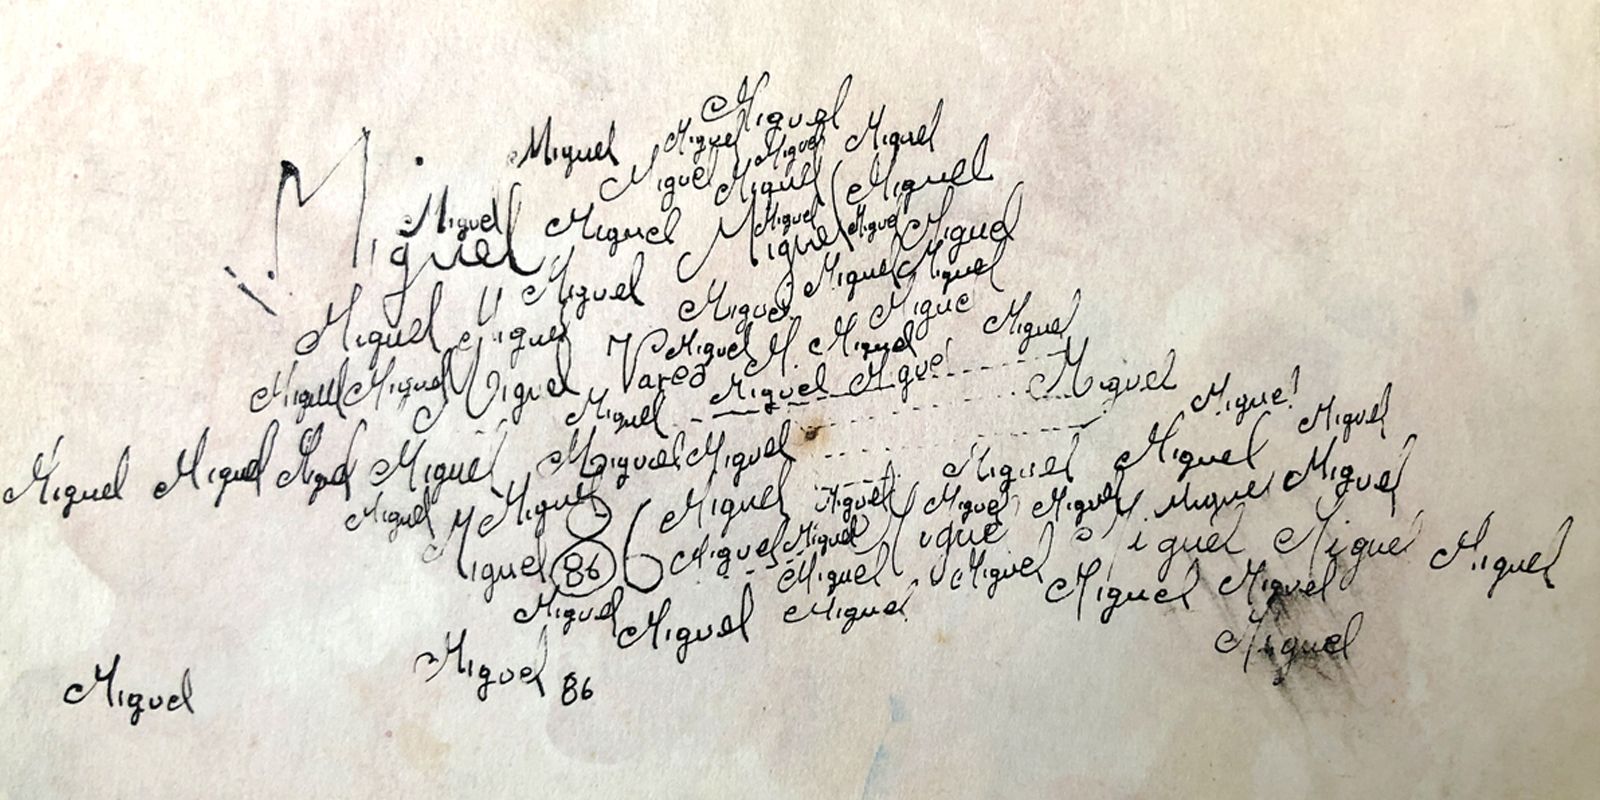 Miguel
Miguel Miguel Miguel Miguel
Miguel Miguel Miguel
Miguel Miguel Miguel Miguel Miguel Miguel
Miguel Miguel Miguel
Miguel Miguel Miguel Miguel
Miguel Miguel Miguel Migue
Miguel M. Miguel Miguel
Miguel Miguel Miguel Miguel Miguel Miguel
Miguel Migue! Miguel
Miguel Miguel Miguel Miguel Miguel Miguel Miguel Miguel
Miguel Miguel Miguel Miguel Miguel Miguel Miguel Miguel
Miguel 86 86 Miguel Miguel Migue Miguel Miguel Miguel
Miguel Miguel Miguel Miguel
Miguel Miguel Miguel
Miguel
Miguel 86
Miguel